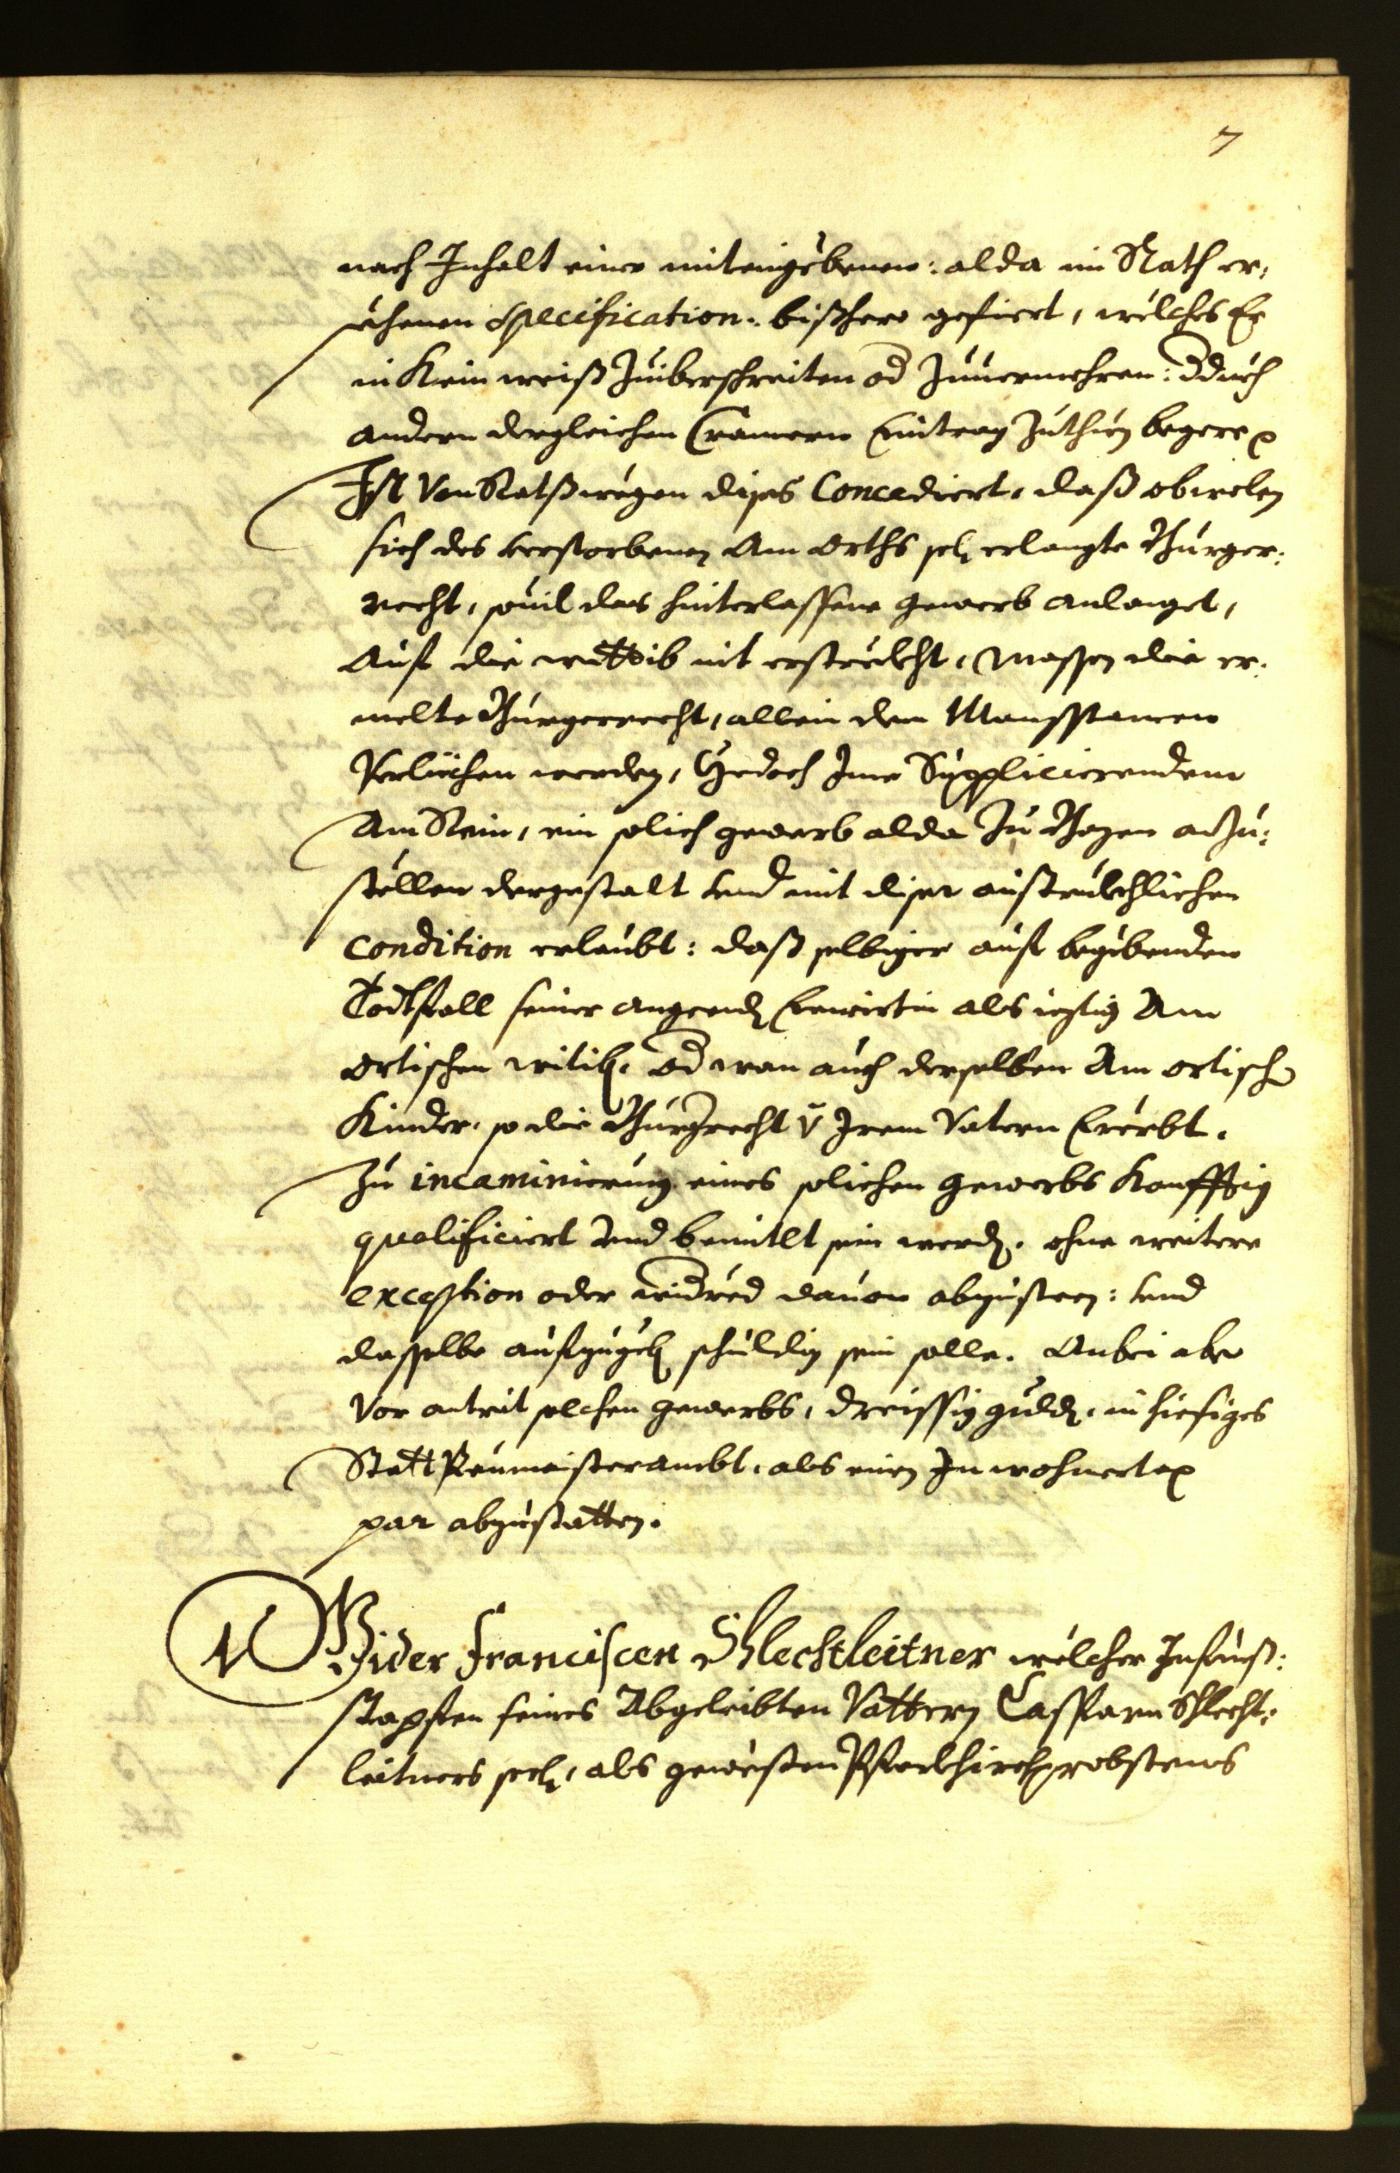 7
nach Inhalt einer miteingebenen: alda im Rath er,
sehenen Specification. bißhero gefiert, welches Er
in kein weiß zuiberschreiten od zuuermehren: dduch
andern dergleichen Cramern Eintrag zuthuen begere
Ist Von Ratßwegen dises Concediert, daß obwolen
sich des verstorbenen Am Orths sel erlangte Burger,
recht, souil das hinterlassene gewerb anlanget,
Auf die wittib nit erstreckht, Massen die er,
melte Burgerrecht, allein dem Mansstamen
Verlichen werden, Jedoch Ime Supplicierendem
Am Stein, ein solich gewerb alda zu Bozen anzu,
stellen dergestalt vnd mit diser austruckhlichen
condition erlaubt: daß selbiger auf begebenden
Todtfall seiner angeend Eewirtin als ieztig Am
ortischen witib, od wan auch derselben Am ortisch
Kinder, so die Burgrecht v Irem Vatern Ererbt,
zu incaminierung eines solichen gewerbs konfftig
qualificiert vnd bemitlt sein werd, ohne weitere
exception oder widred dauon abzusteen: vnd
dasselbe aufzugeb schuldig sein solle. Anbei aber
Vor antrit solchen gewerbs, dreissig guld, in hiesiges
Statt Paumaisterambt, als einen Inwohnertax
par abzustatten.
Wider Franciscen Schlechtleitner welcher Infueß,
stapfen seines Abgeleibten Vattern Casparn Schlecht,
leitners seel, als gewesten Pfarkhirchprobstens